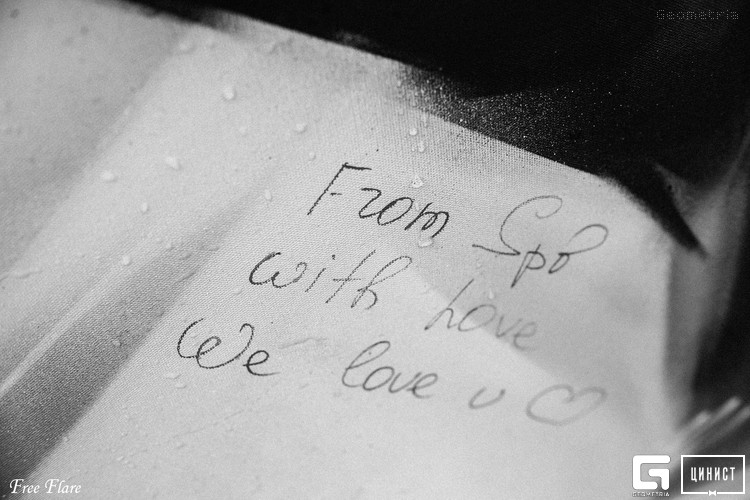 Geometria
From Spb
with Love
We love u ♡
Free Flare
GEOMETRIA
ЦИНИСТ